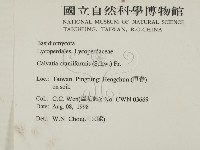 國立自然科學博物館
NATIONAL MUSEUM OF NATURAL SCIENCE
TAICHUNG, TAIWAN, R.O.CHINA
Basidiomycota
Lycoperdales, Lycoperdaceae
Calvatia craniiformis (Schw.) Fr.
Loc.: Taiwan. Pingtung: Hengchun
on soil.
Col.: C.C. Wen No: CWN 03665
Date: Aug. 08, 1998
Det.: W.N. Chou